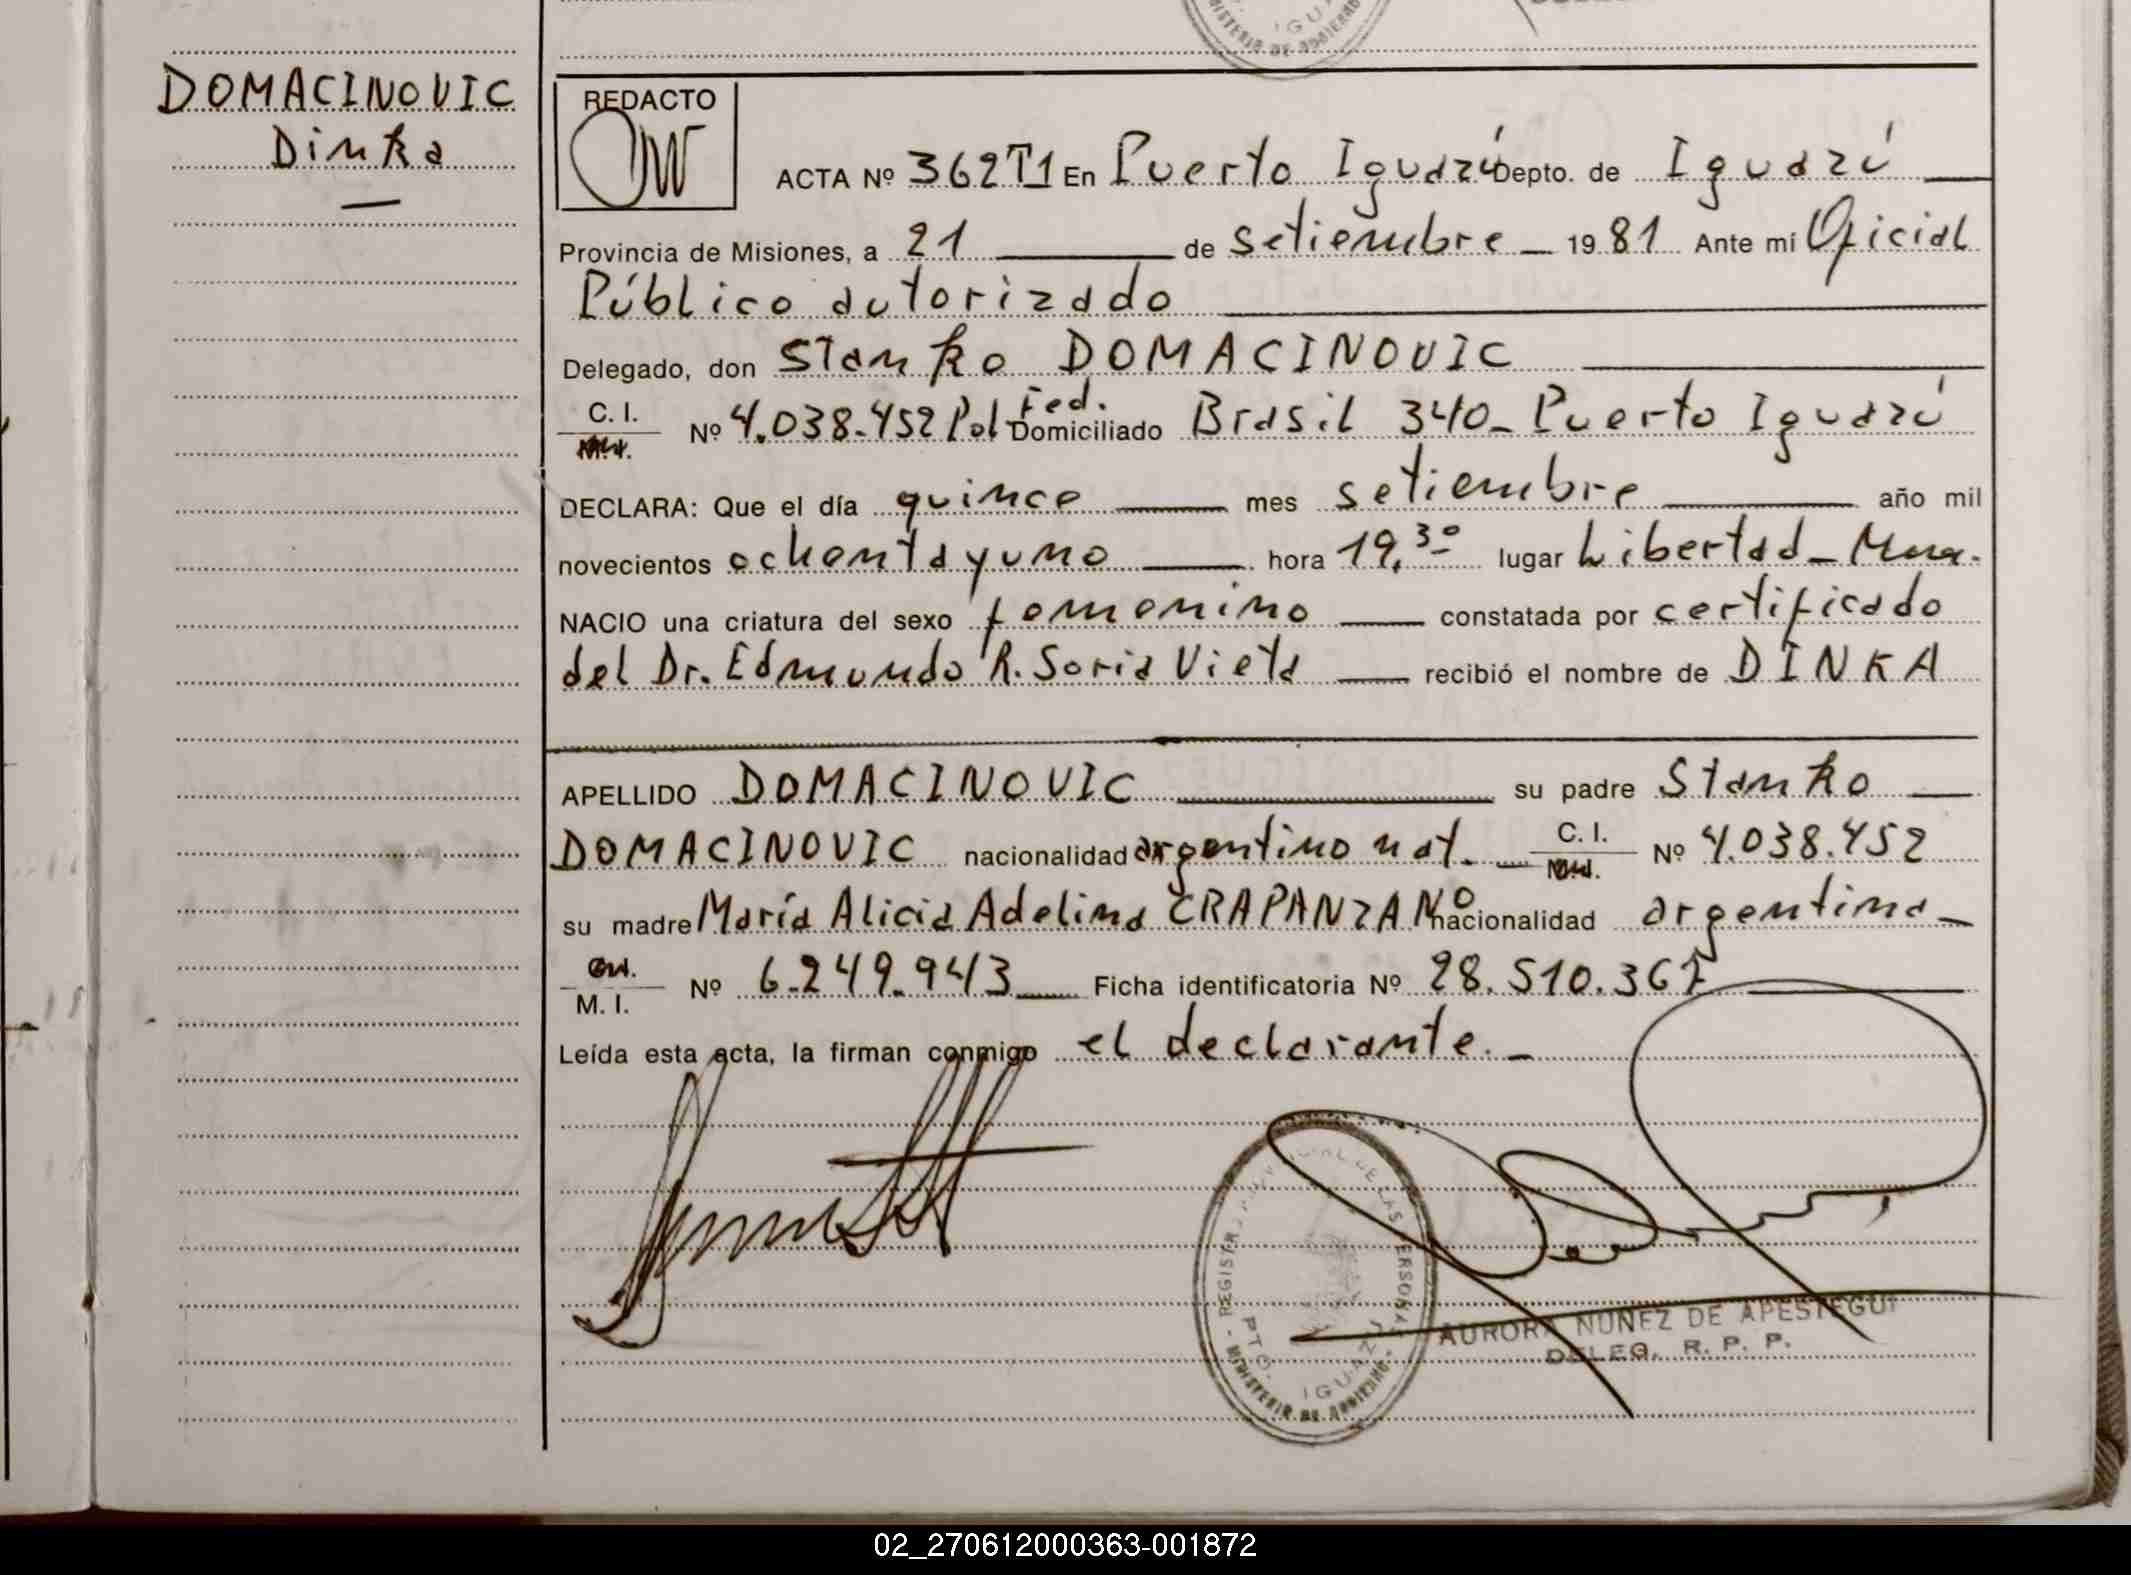 DOMACINOVIC
Dinka
REDACTO
ACTA Nº 362T1 En Puerto Iguazú Depto. de Iguazú
Provincia de Misiones, a 21 de setiembre 19 81 Ante mí Oficial
Público autorizado
Delegado, don Stanko DOMACINOVIC
C. I. Nº 4.038.452 Pol Fed. Domiciliado Brasil 340_ Puerto Iguazú
DECLARA: Que el día quince mes setiembre año mil
novecientos ochenta y uno hora 19,30 lugar Libertad_
NACIO una criatura del sexo femenino constatada por certificado
del Dr. Edmundo R. Soria Vieta recibió el nombre de DINKA
APELLIDO DOMACINOVIC su padre Stanko
DOMACINOVIC nacionalidad argentino nat. C. I. Nº 4.038.452
su madre María Alicia Adelina CRAPANZANO nacionalidad argentina_
M. I. Nº 6.249.943 Ficha identificatoria Nº 28.510.367
Leída esta acta, la firman conmigo el declarante._
REGISTRO PROVINCIAL DE LAS PERSONAS
PTO. IGUAZU
MINISTERIO DE GOBIERNO
AURORA NUÑEZ DE APESTEGUI
DELEG. R. P. P.
02_270612000363-001872